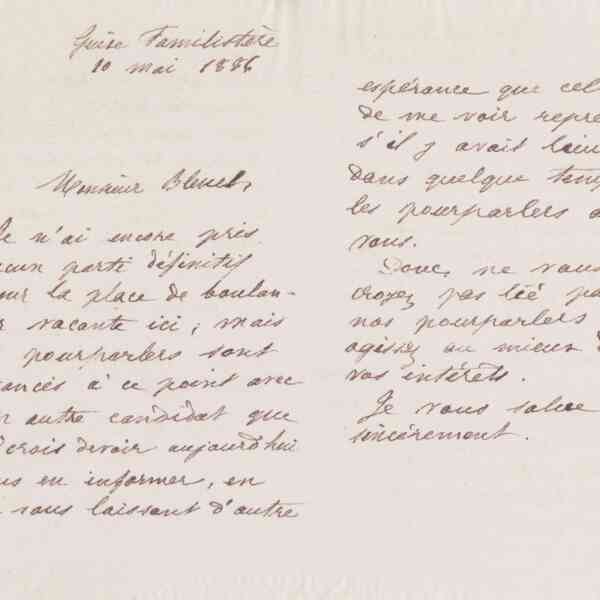 Guise Familistère
10 mai 1886
Monsieur Bleuet,
Je n'ai encore pris
aucun parti définitif
pour la place de boulan-
vacante ici; mais
pourparlers sont
avancés à ce point avec
autre candidat que
crois devoir aujourd'hui
vous en informer, en
vous laissant d'autre
espérance que cel
de me voir repre
s'il y avait lieu
dans quelque temp
les pourparlers a
vous.
Donc, ne vous
croyez pas lié pa
nos pourparlers
agissez au mieux d
vos intérêts.
Je vous salue
sincèrement.